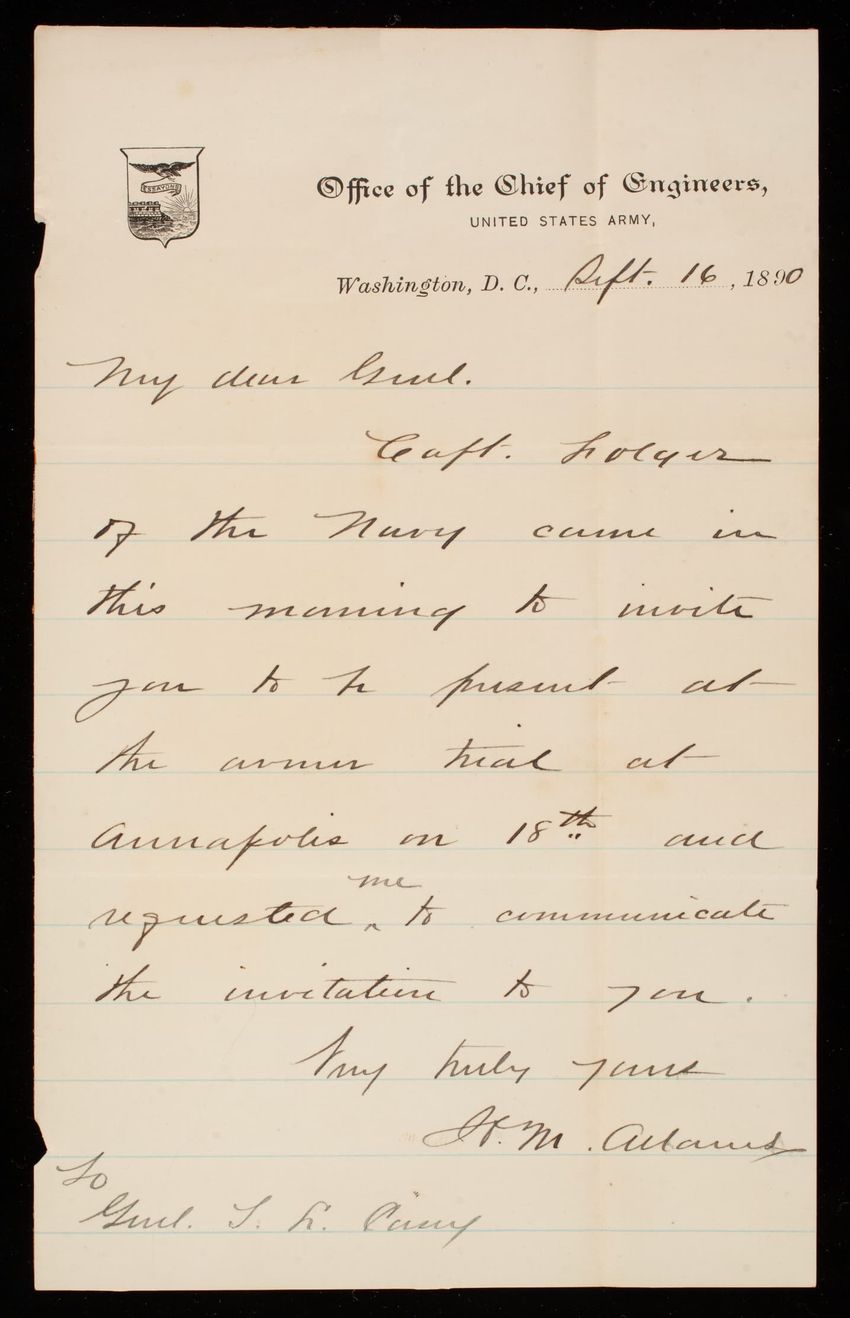 ESSAYONS
Office of the Chief of Engineers,
UNITED STATES ARMY,
Washington, D. C., Sept. 16, 1890
My dear Genl.
Capt. Folger
of the Navy came in
this morning to invite
you to be present at
the armor trial at
Annapolis on 18th and
me
requested ‸ to communicate
the invitation to you.
Very truly yours
H. M. Adams
To
Genl. T. L. Casey